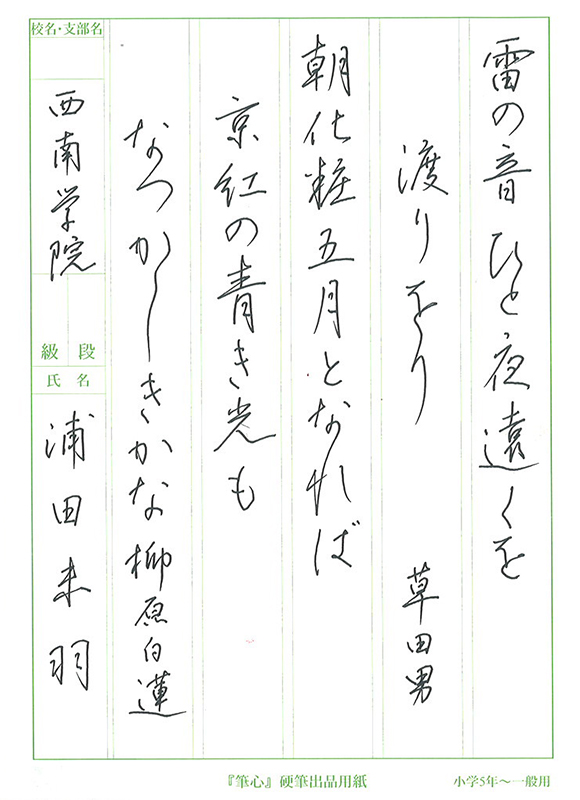 雷の音ひと夜遠くを
渡りをり 草田男
朝化粧五月となれば
京紅の青き光も
なつかしきかな 柳原白蓮
校名・支部名
西南学院
級 段
氏 名
浦田未羽
『筆心』硬筆出品用紙 小学5年〜一般用